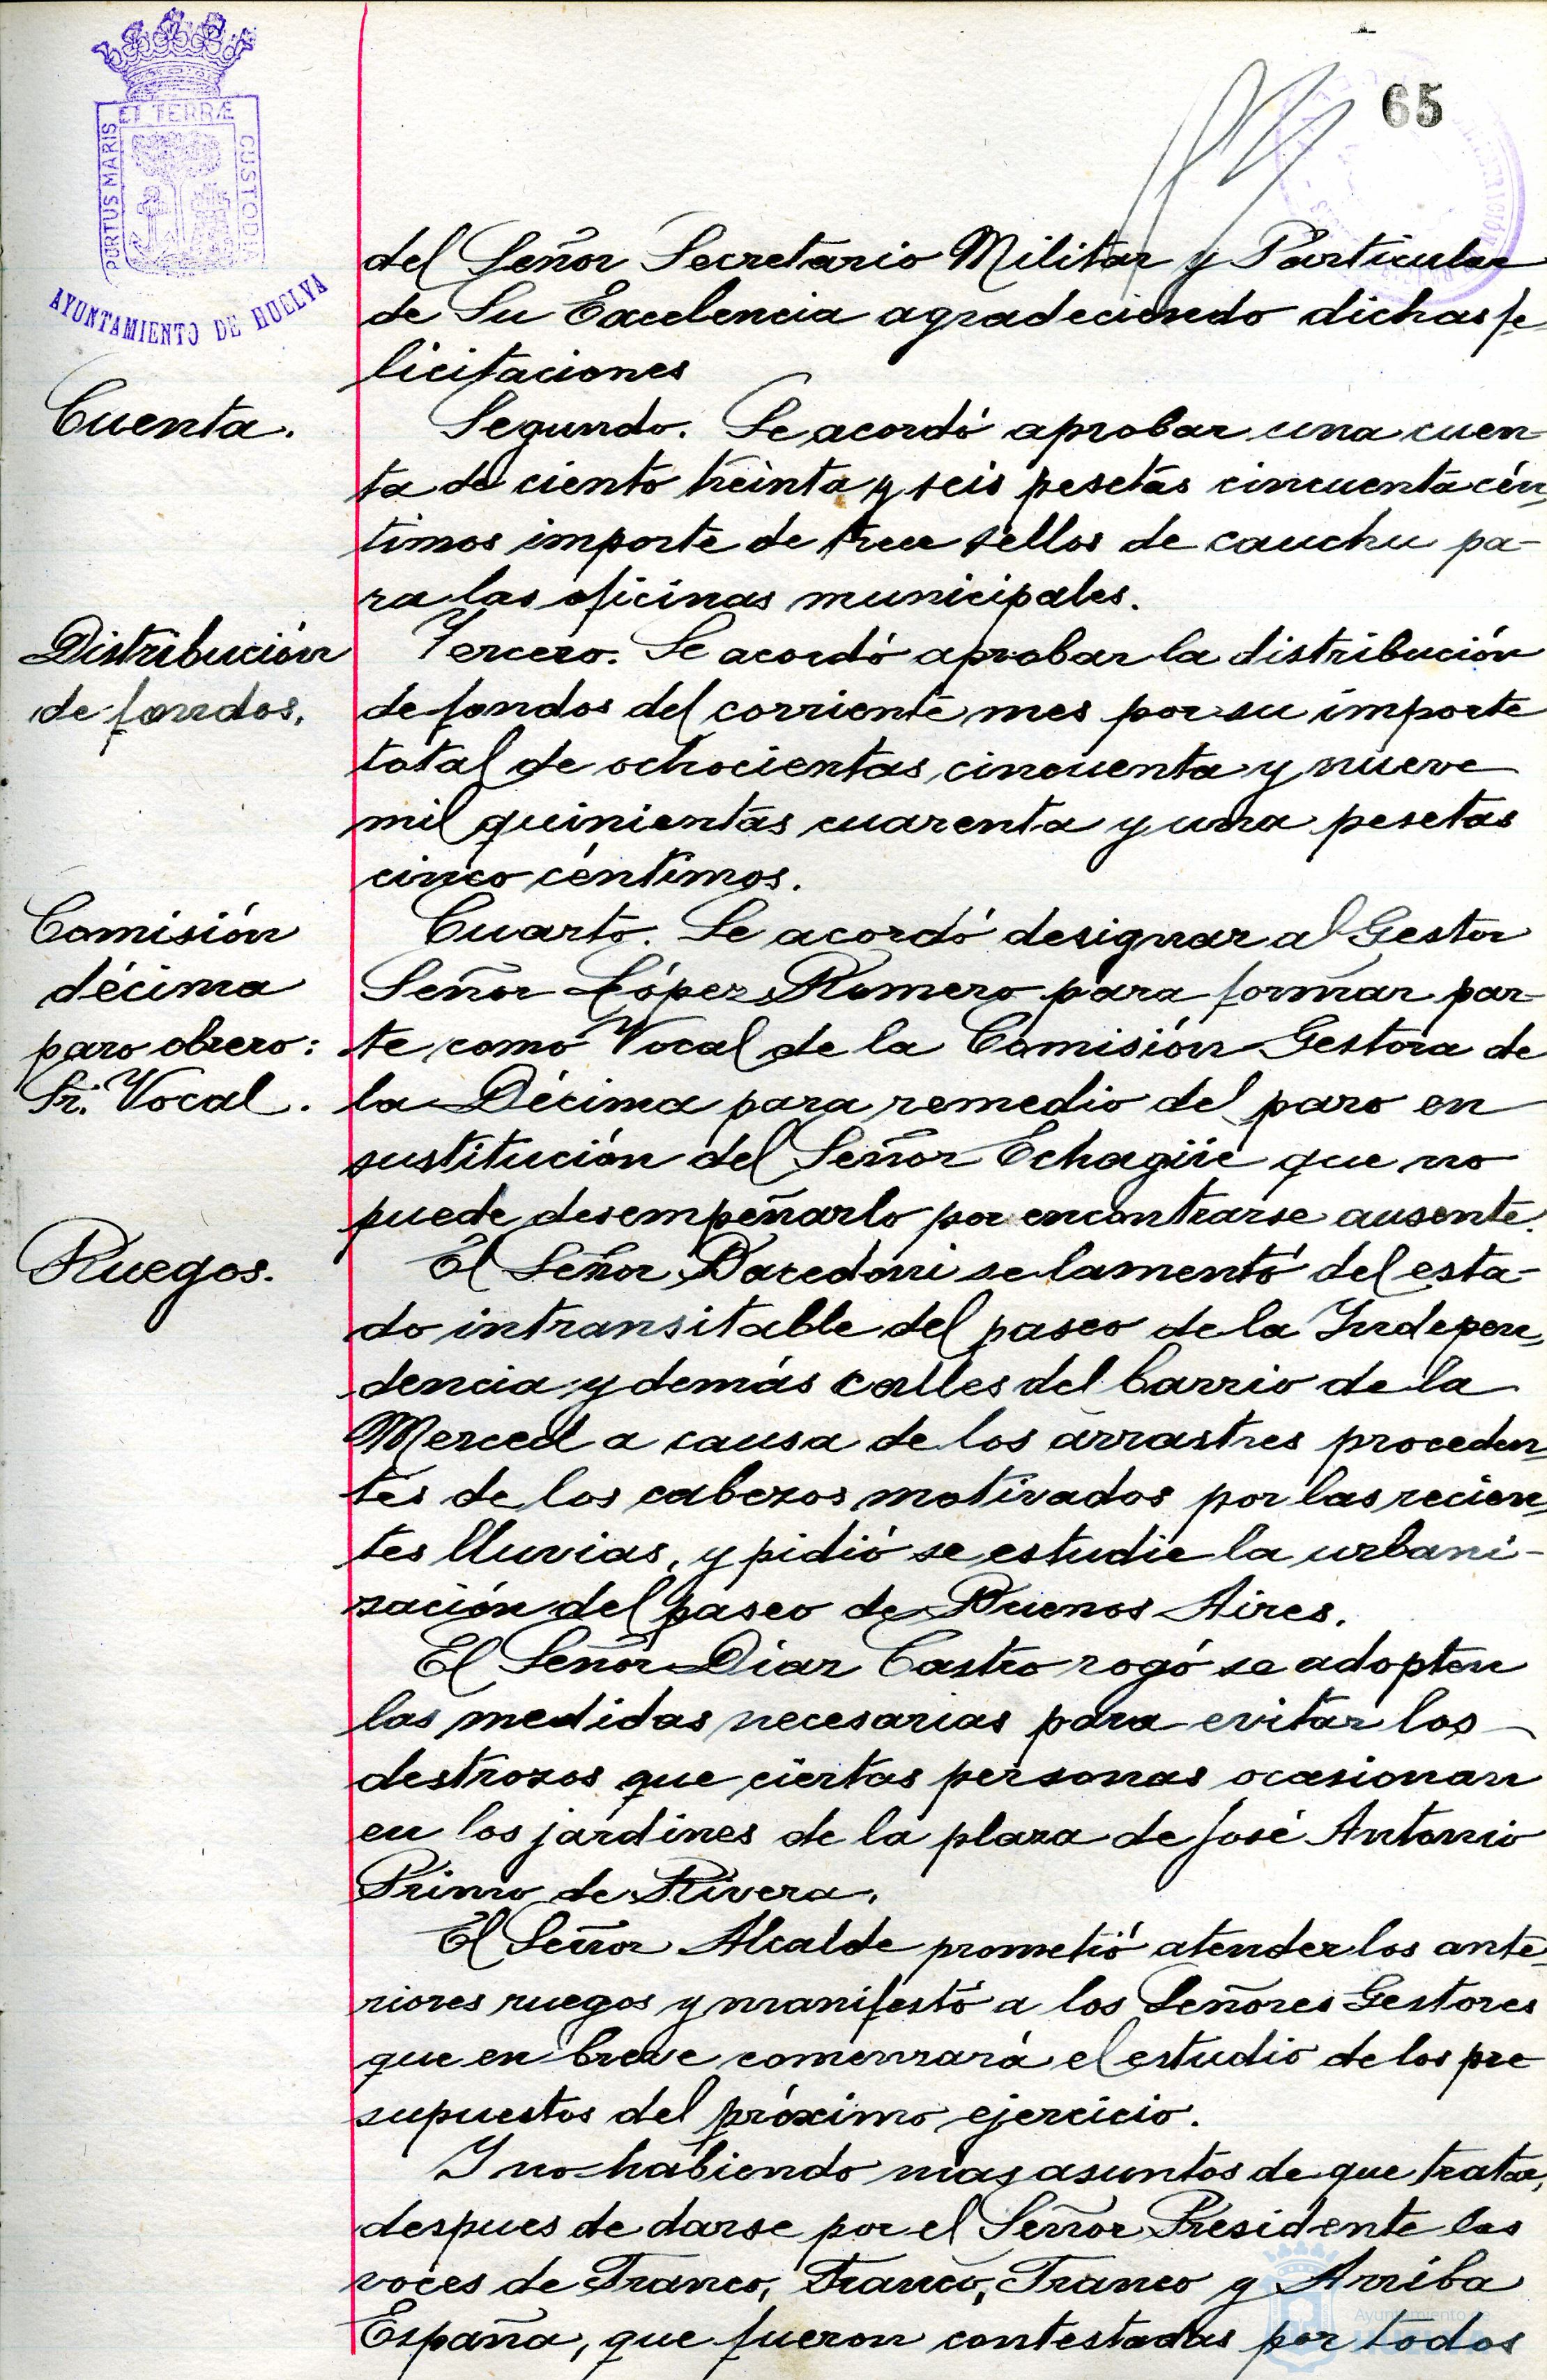 65
PORTUS MARIS ET TERRÆ CUSTODIA
AYUNTAMIENTO DE HUELVA
del Señor Secretario Militar y Particular
de Su Excelencia agradeciendo dichas fe-
licitaciones
Cuenta.
Segundo. Se acordó aprobar una cuen-
ta de ciento treinta y seis pesetas cincuenta cén-
timos importe de trece sellos de cauchu pa-
ra las oficinas municipales.
Distribución
de fondos.
Tercero. Se acordó aprobar la distribución
de fondos del corriente mes por su importe
total de ochocientas cincuenta y nueve
mil quinientas cuarenta y una pesetas
cinco céntimos.
Comisión
décima
paro obrero:
Sr. Vocal.
Cuarto. Se acordó designar al Gestor
Señor López Romero para formar par-
te como Vocal de la Comisión Gestora de
la Décima para remedio del paro en
sustitución del Señor Echagüe que no
puede desempeñarlo por encontrarse ausente.
Ruegos.
El Señor Dacedoni se lamentó del esta-
do intransitable del paseo de la Indepen-
dencia y demás calles del barrio de la
Merced a causa de los arrastres proceden-
tes de los cabezos motivados por las recien-
tes lluvias, y pidió se estudie la urbani-
zación del paseo de Buenos Aires.
El Señor Díaz Castro rogó se adopten
las medidas necesarias para evitar los
destrozos que ciertas personas ocasionan
en los jardines de la plaza de José Antonio
Primo de Rivera.
El Señor Alcalde prometió atender los ante-
riores ruegos y manifestó a los Señores Gestores
que en breve comenzará el estudio de los pre
supuestos del próximo ejercicio.
Y no habiendo mas asuntos de que tratar,
despues de darse por el Señor Presidente las
voces de Franco, Franco, Franco y Arriba
España, que fueron contestadas por todos
Ayuntamiento de
HUELVA